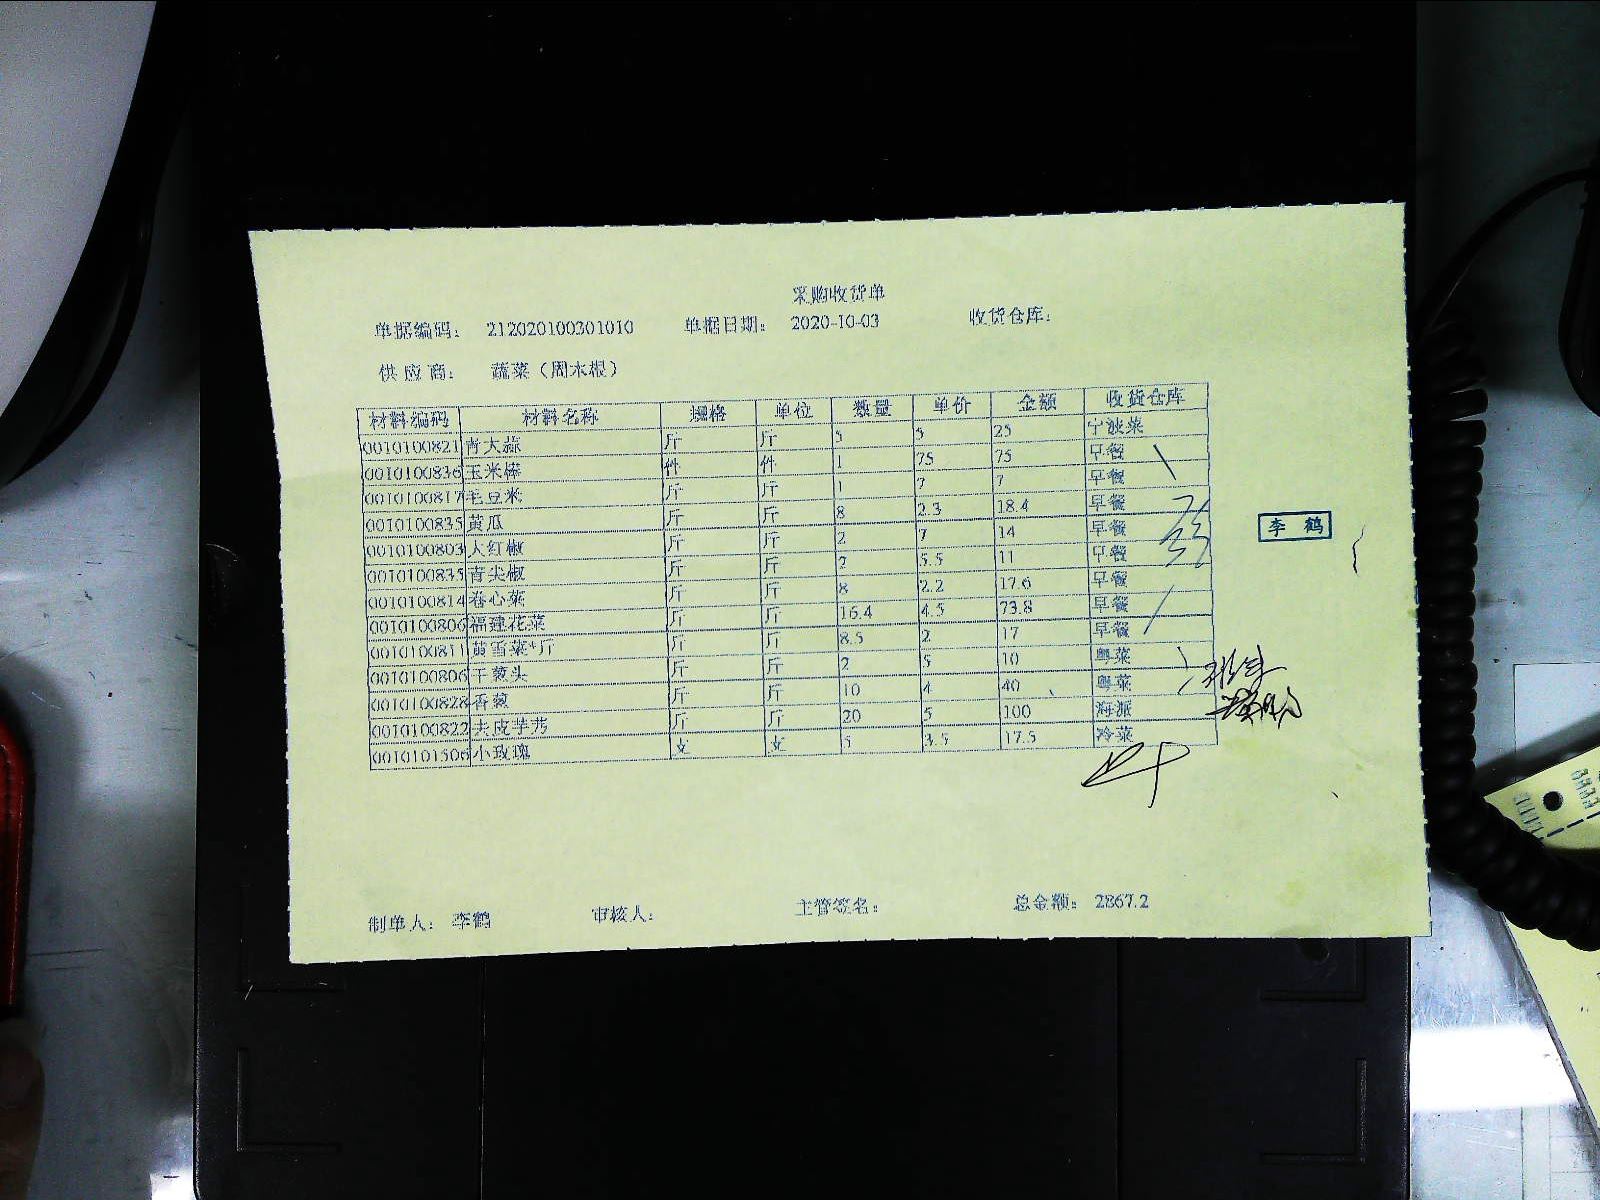 采购收货单
单据编码： 212020100301010 单据日期： 2020-10-03 收货仓库：
供应商： 蔬菜（周木根）
材料编码 材料名称 规格 单位 数量 单价 金额 收货仓库
0010100821 青大蒜 斤 斤 5 5 25 宁波菜
0010100836 玉米棒 件 件 1 75 75 早餐
0010100817 毛豆米 斤 斤 1 7 7 早餐
0010100835 黄瓜 斤 斤 8 2.3 18.4 早餐
0010100803 大红椒 斤 斤 2 7 14 早餐
0010100835 青尖椒 斤 斤 2 5.5 11 早餐
0010100814 卷心菜 斤 斤 8 2.2 17.6 早餐
0010100806 福建花菜 斤 斤 16.4 4.5 73.8 早餐
0010100811 黄雪菜*斤 斤 斤 8.5 2 17 早餐
0010100806 干葱头 斤 斤 2 5 10 粤菜
0010100828 香葱 斤 斤 10 4 40 粤菜
0010100822 去皮芋艿 斤 斤 20 5 100 海派
0010101506 小玫瑰 支 支 5 3.5 17.5 冷菜
李 鹤
制单人： 李鹤 审核人： 主管签名： 总金额： 2867.2